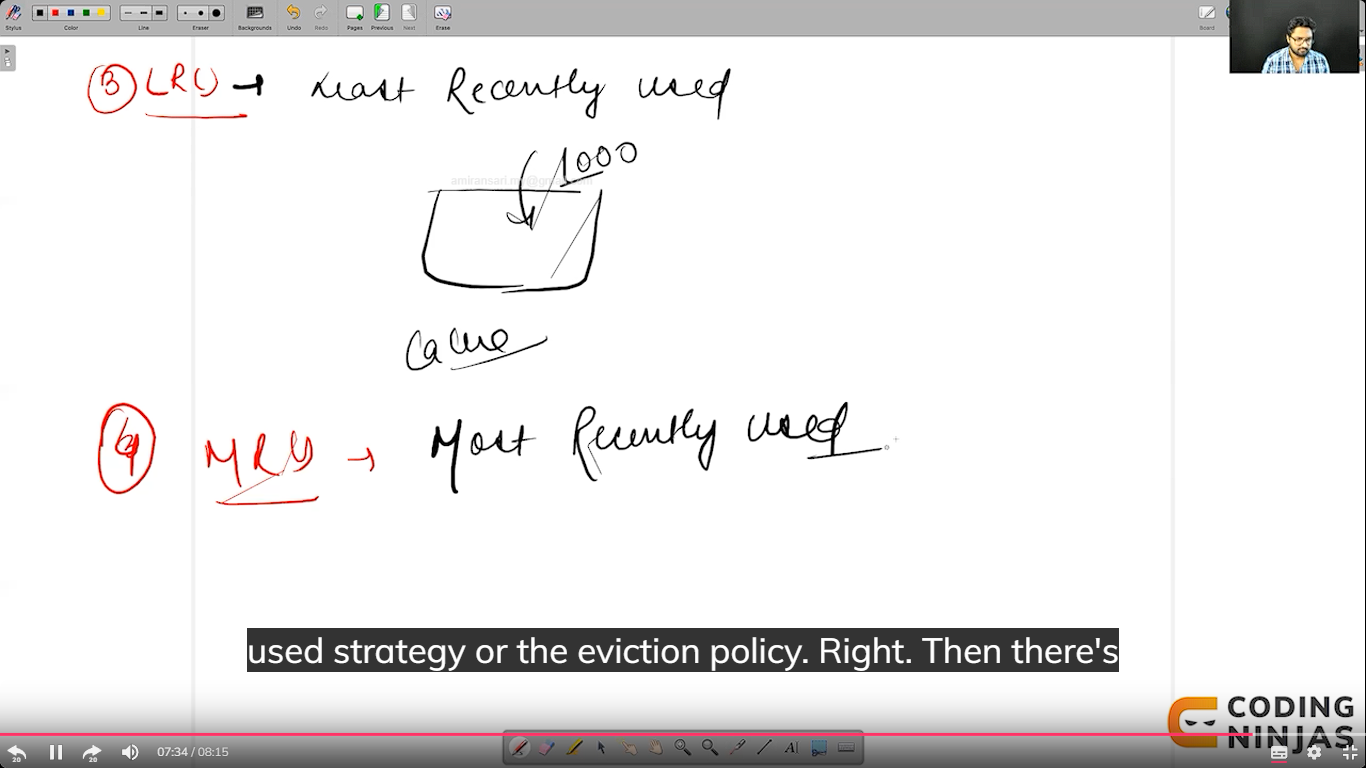 Stylus Color Line Eraser Backgrounds Undo Redo Pages Previous Next Erase Board
3 LRU → Least Recently used
1000
amiransari.m @gmail.com
Cache
4 MRU → Most Recently used
used strategy or the eviction policy. Right. Then there's
CODING
NINJAS
20 20 07:34 / 08:15